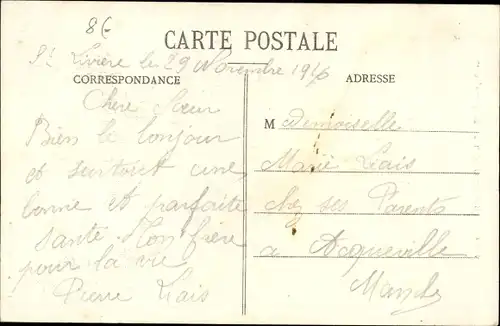 8€
CARTE POSTALE
le 29 Novembre 1916
CORRESPONDANCE
ADRESSE
Chère Sœur
Bien le bonjour
et surtout une
bonne et parfaite
santé. Ton frère
pour la vie
Pierre Lais
Mademoiselle
Marie Lais
chez ses Parents
a Acqueville
Manche